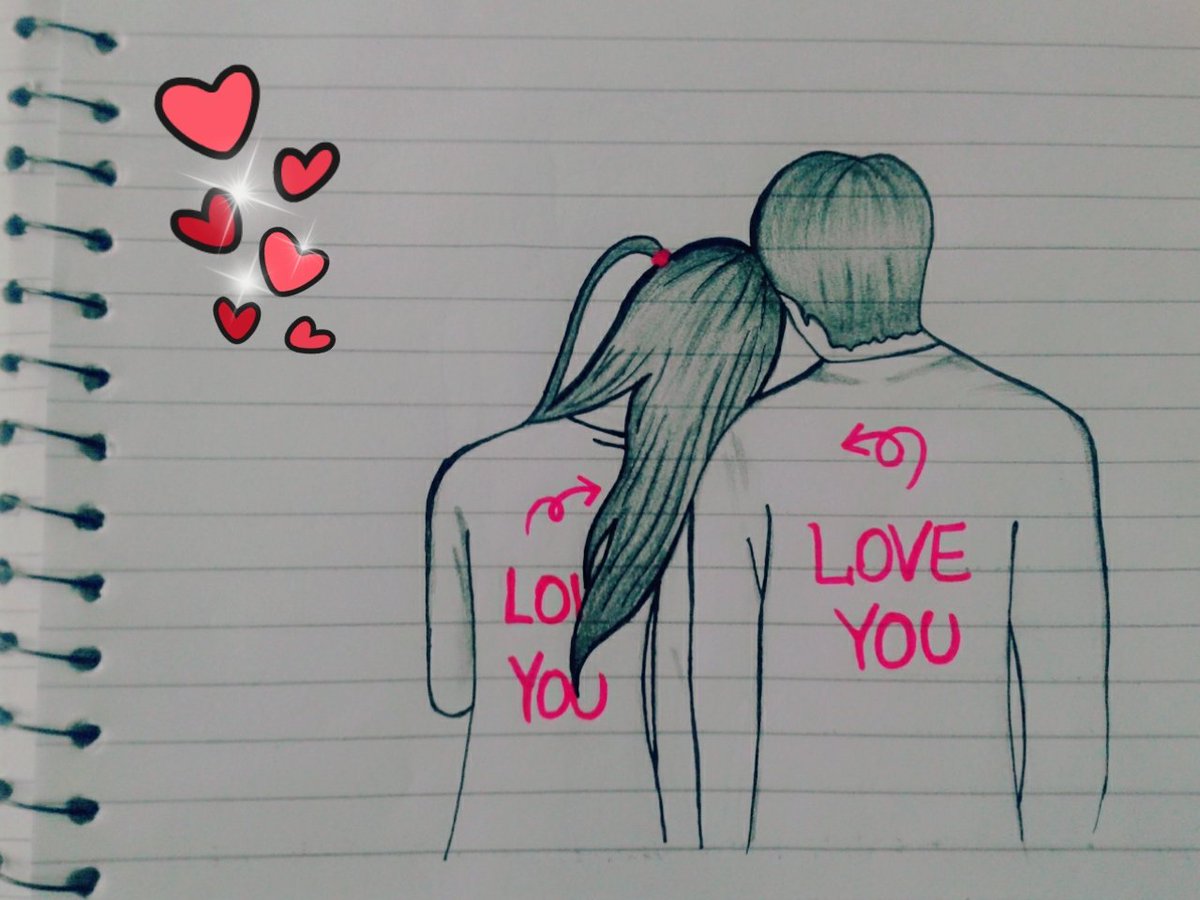 LOV
YOU
LOVE
YOU